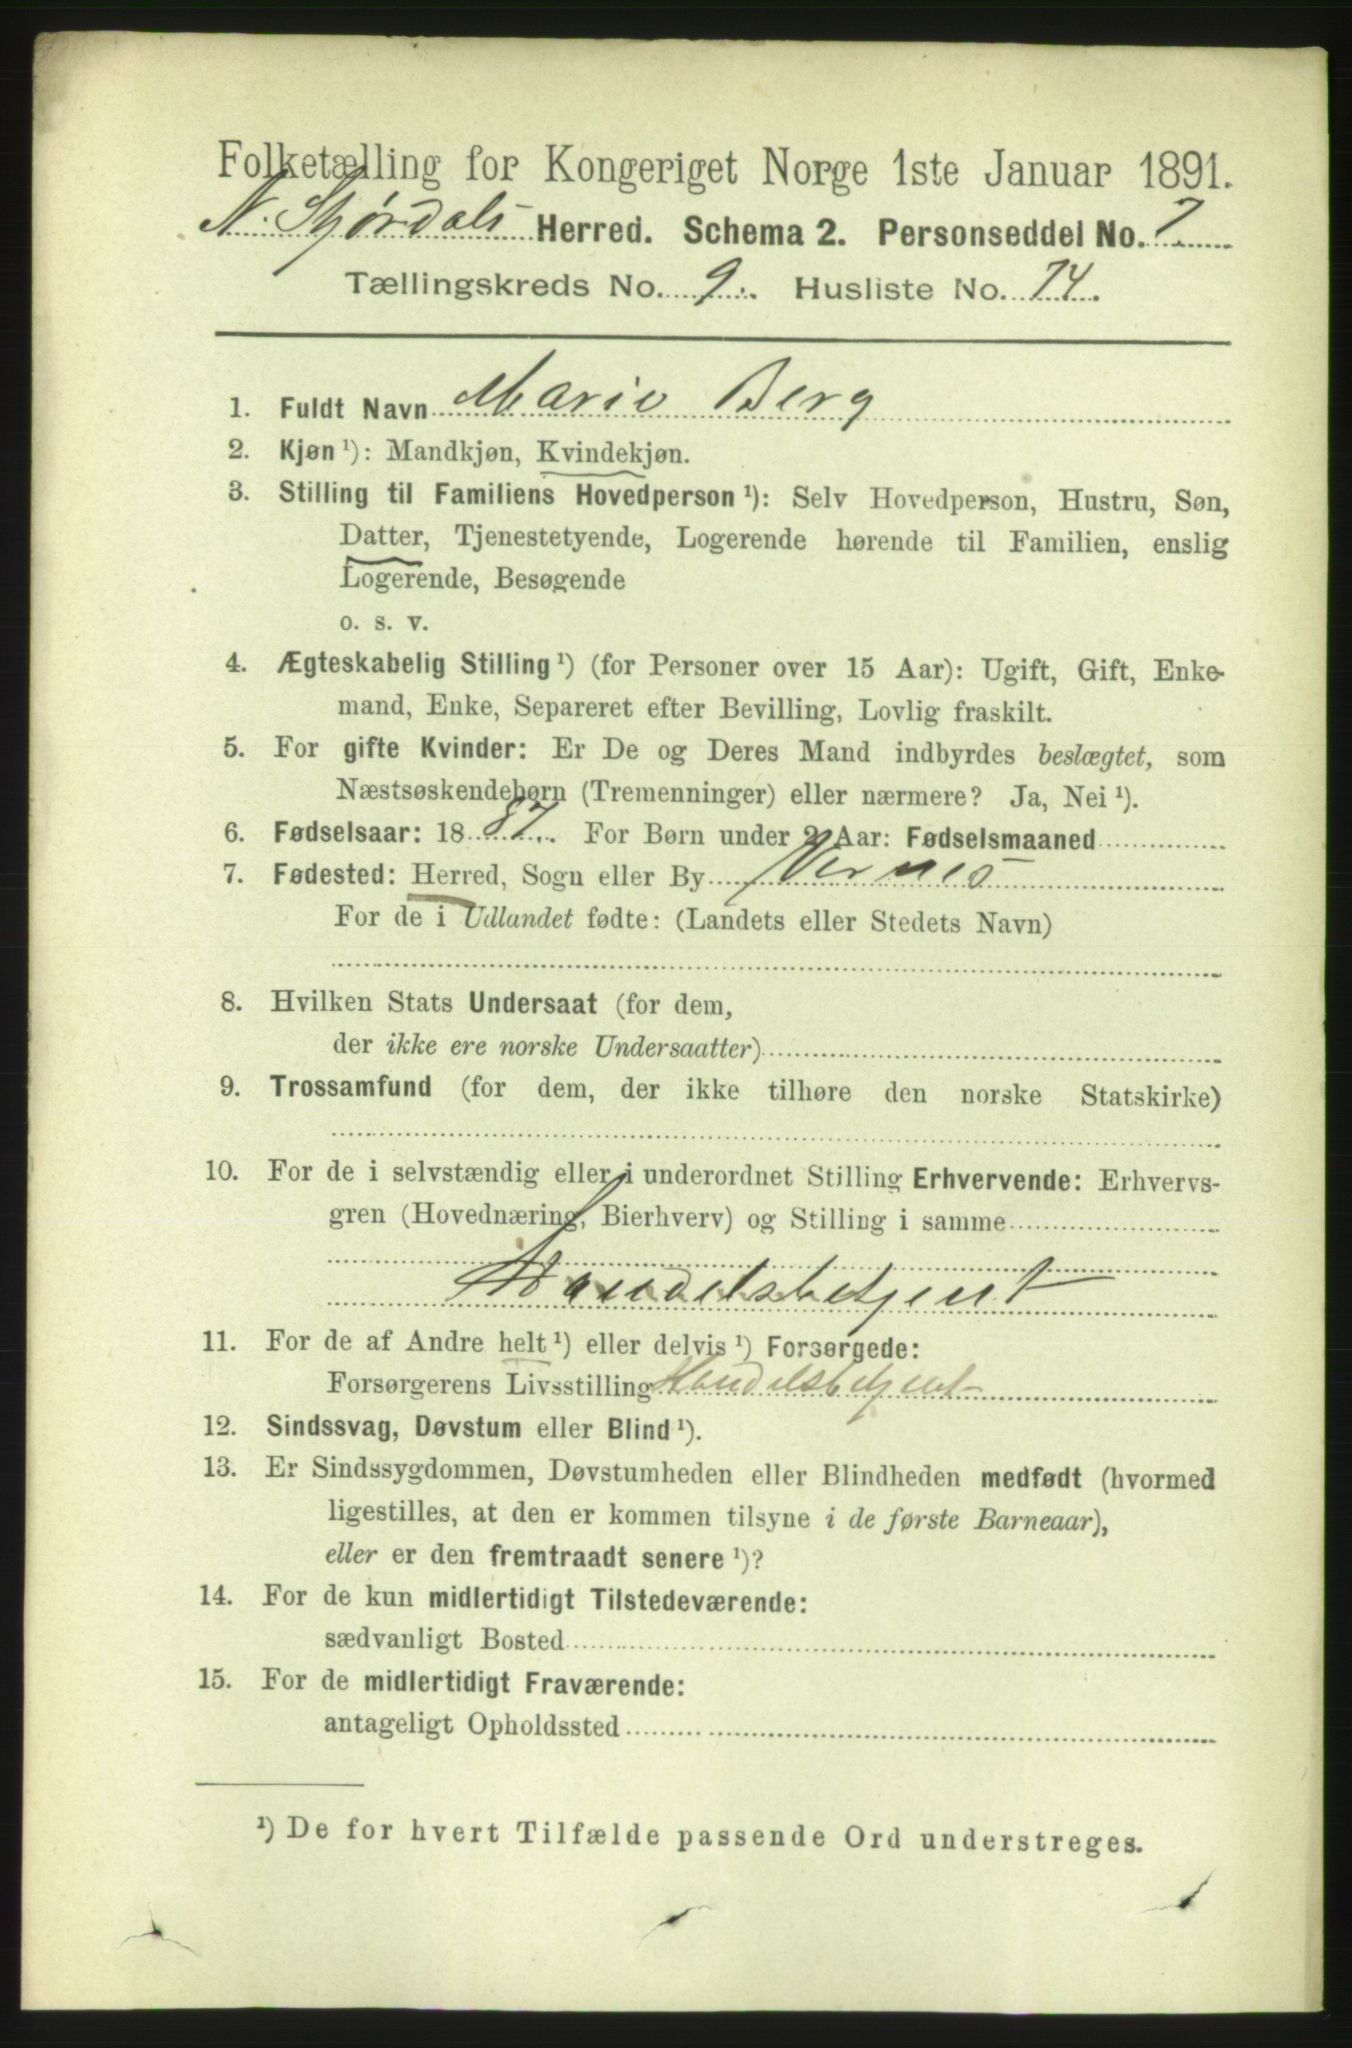 Folketælling for Kongeriget Norge 1ste Januar 1891.
N. Stjørdals Herred. Schema 2. Personseddel No. 7
Tællingskreds No. 9. Husliste No. 74.
1. Fuldt Navn Marie Berg
2. Kjøn ¹): Mandkjøn, Kvindekjøn.
3. Stilling til Familiens Hovedperson ¹): Selv Hovedperson, Hustru, Søn,
Datter, Tjenestetyende, Logerende hørende til Familien, enslig
Logerende, Besøgende
o. s. v.
4. Ægteskabelig Stilling ¹) (for Personer over 15 Aar): Ugift, Gift, Enke-
mand, Enke, Separeret efter Bevilling, Lovlig fraskilt.
5. For gifte Kvinder: Er De og Deres Mand indbyrdes beslægtet, som
Næstsøskendebørn (Tremenninger) eller nærmere? Ja, Nei ¹).
6. Fødselsaar: 1887. For Børn under 2 Aar: Fødselsmaaned
7. Fødested: Herred, Sogn eller By Vernes
For de i Udlandet fødte: (Landets eller Stedets Navn)
8. Hvilken Stats Undersaat (for dem,
der ikke ere norske Undersaatter)
9. Trossamfund (for dem, der ikke tilhøre den norske Statskirke)
10. For de i selvstændig eller i underordnet Stilling Erhvervende: Erhvervs-
gren (Hovednæring, Bierhverv) og Stilling i samme
Handelsbetjent
11. For de af Andre helt ¹) eller delvis ¹) Forsørgede:
Forsørgerens Livsstilling Handelsbetjent
12. Sindssvag, Døvstum eller Blind ¹).
13. Er Sindssygdommen, Døvstumheden eller Blindheden medfødt (hvormed
ligestilles, at den er kommen tilsyne i de første Barneaar),
eller er den fremtraadt senere ¹)?
14. For de kun midlertidigt Tilstedeværende:
sædvanligt Bosted
15. For de midlertidigt Fraværende:
antageligt Opholdssted
¹) De for hvert Tilfælde passende Ord understreges.